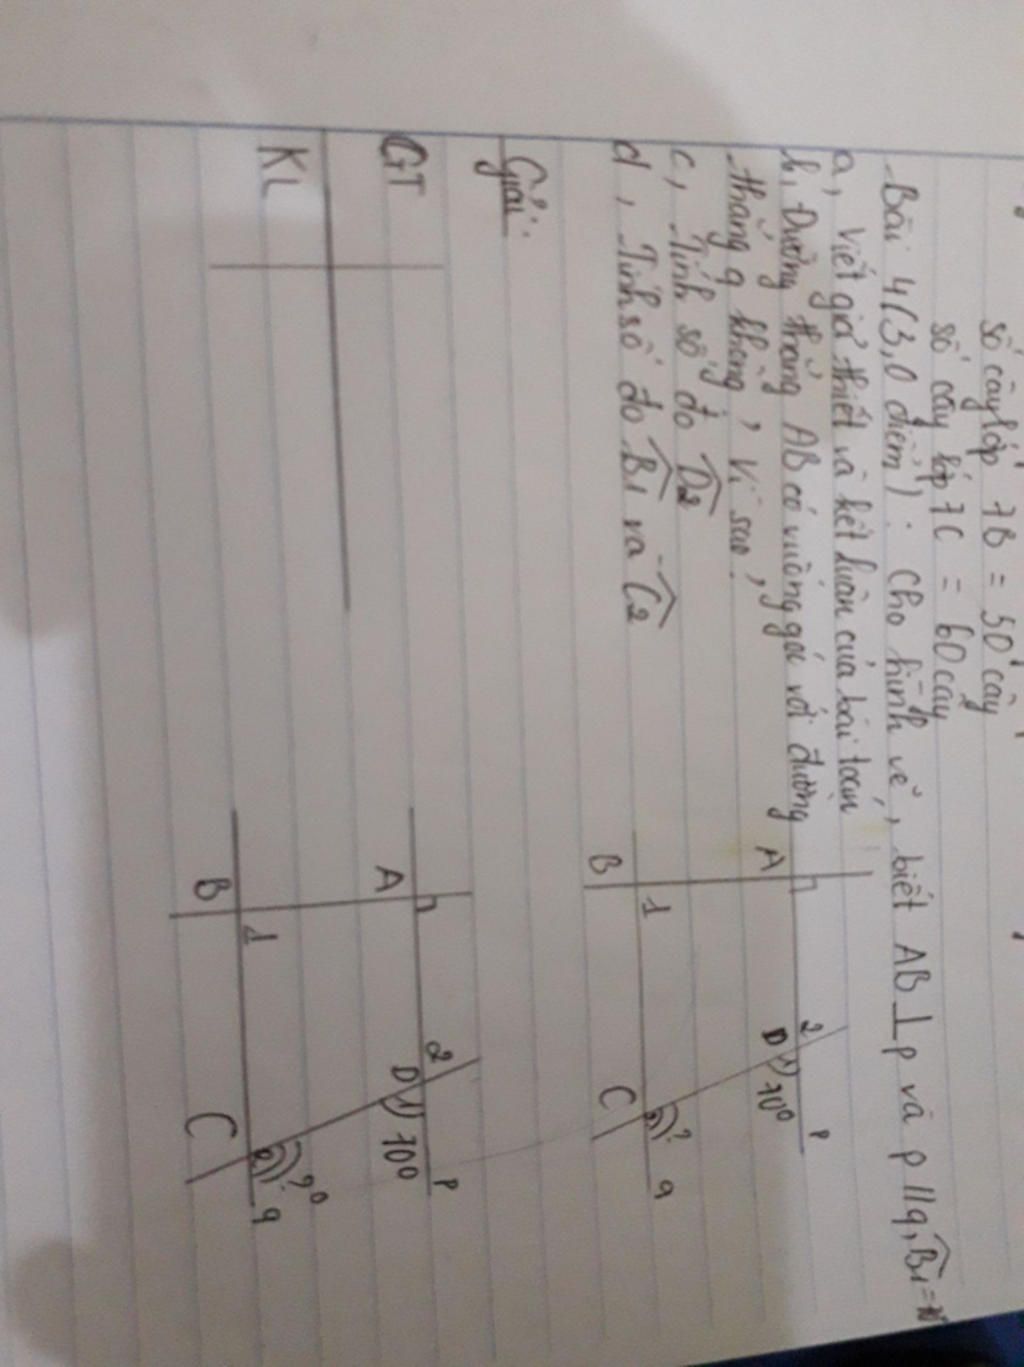 số cây lớp 7B = 50 cây
số cây lớp 7C = 60 cây
Bài 4 (3,0 điểm): Cho hình vẽ, biết AB ⊥ p và p // q, B1 =
a, Viết giả thiết và kết luận của bài toán
b, Đường thẳng AB có vuông góc với đường
thẳng q không, Vì sao,
c, Tính số đo D2
d, Tính số đo B1 và C2
A 2 D 1 70° p
B 1 C 2 ? q
Giải:
GT
KL
A 2 D 1 70° p
B 1 C 2 ?° q